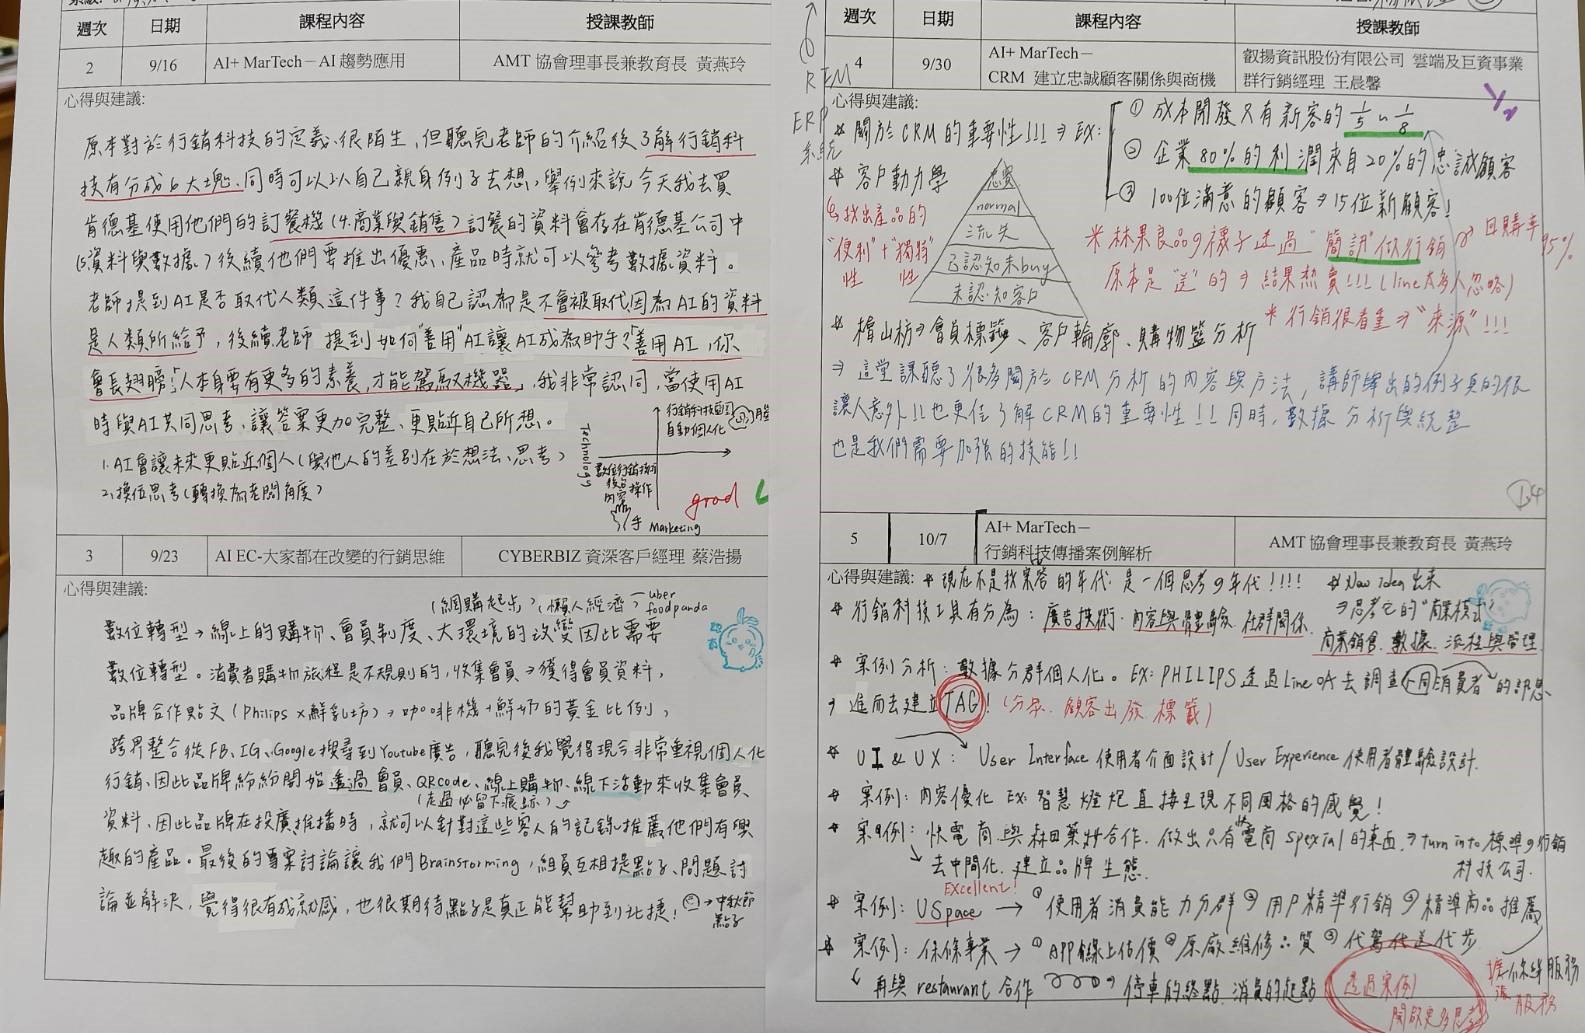 週次 日期 課程內容 授課教師
2 9/16 AI+ MarTech－AI 趨勢應用 AMT 協會理事長兼教育長 黃燕玲
心得與建議:
原本對於行銷科技的定義很陌生,但聽完老師的介紹後了解行銷科
技有分成6大塊、同時可以以自己親身例子去想,舉例來說 今天我去買
肯德基使用他們的訂餐機(4.商業與銷售)訂餐的資料會存在肯德基公司中
(5.資料與數據)後續他們要推出優惠、產品時就可以參考數據資料。
老師提到AI是否取代人類這件事?我自己認為是不會被取代因為AI的資料
是人類所給予,後續老師 提到如何"善用"AI讓AI成為助手?「善用AI,你、
會長翅膀!」人本身要有更多的素養,才能駕馭機器」,我非常認同,當使用AI
時與AI共同思考、讓答案更加完整、更貼近自己所想。
1.AI會讓未來更貼近個人(與他人的差別在於想法、思考)
2.換位思考(轉換為老闆角度)
Technology
自動個人化
操作
內容
手 Marketing
good
3 9/23 AI EC-大家都在改變的行銷思維 CYBERBIZ 資深客戶經理 蔡浩揚
心得與建議:
(網購起步)(懶人經濟) uber
foodpanda
數位轉型→線上的購物、會員制度、大環境的改變因此需要
數位轉型。消費者購物旅程是不規則的,收集會員→獲得會員資料,
品牌合作貼文(Philips x鮮乳坊)→咖啡機+鮮奶的黃金比例,
跨界整合從FB、IG、Google搜尋到Youtube廣告,聽完後我覺得現今非常重視個人化
行銷、因此品牌紛紛開始透過會員、QRcode、線上購物、線下活動來收集會員
(走過必留下痕跡)
資料、因此品牌在投廣推播時,就可以針對這些客人的記錄推薦他們有興
趣的產品。最後的專案討論讓我們Brainstorming,組員互相提點子、問題討
論並解決,覺得很有成就感,也很期待點子是真正能幫助到北捷!
→中秋節
點子
週次 日期 課程內容 授課教師
4 9/30 AI+ MarTech－
CRM 建立忠誠顧客關係與商機
叡揚資訊股份有限公司 雲端及巨資事業
群行銷經理 王晨馨
RFM
ERP
系統
心得與建議:
關於CRM的重要性!!! ⇒ EX:
① 成本開發只有新客的 1/5 ~ 1/8
② 企業80%的利潤來自20%的忠誠顧客
③ 100位滿意的顧客⇒15位新顧客!
客戶動力學
找出產品的
"便利"+"獨特"
性 性
normal
流失
已認知未buy
未認知客戶
*林果良品の襪子透過"簡訊"做行銷 回購率
95%
原本是"送"的⇒結果熱賣!!!(line太多人忽略)
*行銷很看重⇒"來源"!!!
檜山坊⇒會員標籤、客戶輪廓、購物籃分析
⇒這堂課聽了很多關於CRM分析的內容與方法,講師舉出的例子真的很
讓人意外!!也更佳了解CRM的重要性!!同時,數據分析與統整
也是我們需要加強的技能!!
5 10/7 AI+ MarTech－
行銷科技傳播案例解析
AMT 協會理事長兼教育長 黃燕玲
心得與建議: 現在不是找案答的年代 是一個思考の年代!!!!
New idea 出來
⇒思考它的"商業模式"
行銷科技工具有分為:廣告技術、內容與體驗、社群關係、
商業銷售、數據、流程與管理
案例分析:數據分群個人化。EX: PHILIPS透過Line OA去調查不同消費者的訊息
→ 進而去建立TAG!(分眾、顧客出發 標籤)
UI & UX: User Interface 使用者介面設計/User Experience 使用者體驗設計.
案例:內容優化 EX:智慧燈泡直接呈現不同風格的感覺!
案例:快電商與森田藥妝合作.做出只有電商 spexial的東西→turn into標準の行銷
科技公司.
去中間化、建立品牌生態
Excellent!
案例: USpace → ①使用者消費能力分群 ②用戶精準行銷 ③精準商品推薦
案例:保修事業→ ①APP線上估價 ②原廠維修品質 ③代駕代送代步
再與restaurant合作 停車的終點 消費的起點
透過案例
開啟更多思考
服務